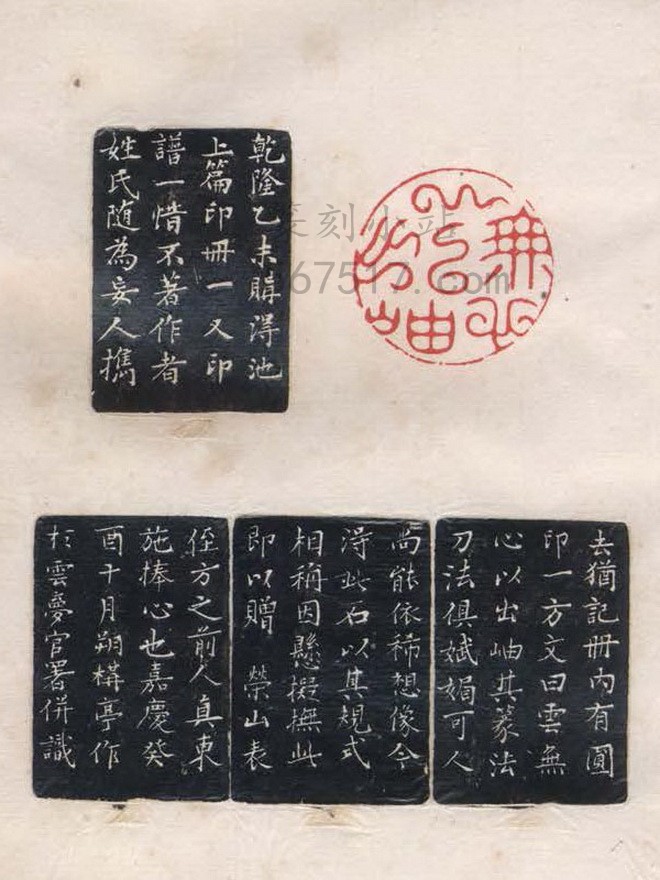 雲無心以出岫
乾隆乙未購淂池
上篇印冊一又印
譜一惜不著作者
姓氏随為妄人携
去猶記冊内有圓
印一方文曰雲無
心以出岫其篆法
刀法俱娬媚可人
尚能依稀想像今
淂此石以其規式
相稱因懸擬撫此
即以贈 榮山表
侄方之前人真東
施捧心也嘉慶癸
酉十月朔構亭作
於雲夢官署併識
篆刻小站
67517.com